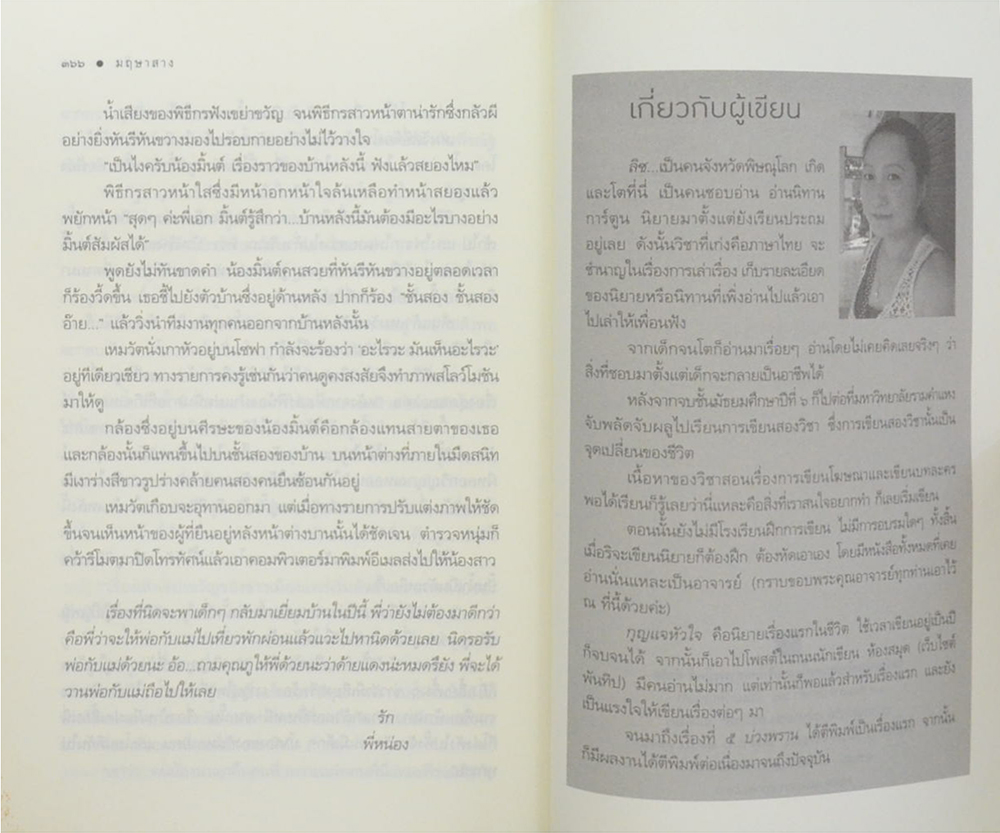 ๓๖๖ ● มฤษาลาง
น้ำเสียงของพิธีกรฟังเขย่าขวัญ จนพิธีกรสาวหน้าตาน่ารักซึ่งกลัวผี
อย่างยิ่งหันรีหันขวางมองไปรอบกายอย่างไม่ไว้วางใจ
"เป็นไงครับน้องมิ้นต์ เรื่องราวของบ้านหลังนี้ ฟังแล้วสยองไหม"
พิธีกรสาวหน้าใสซึ่งมีหน้าอกหน้าใจล้นเหลือทำหน้าสยองแล้ว
พยักหน้า "สุดๆ ค่ะพี่เอก มิ้นต์รู้สึกว่า...บ้านหลังนี้มันต้องมีอะไรบางอย่าง
มิ้นต์สัมผัสได้"
พูดยังไม่ทันขาดคำ น้องมิ้นต์คนสวยที่หันรีหันขวางอยู่ตลอดเวลา
ก็ร้องวี้ดขึ้น เธอชี้ไปยังตัวบ้านซึ่งอยู่ด้านหลัง ปากก็ร้อง "ชั้นสอง ชั้นสอง
อ๊าย..." แล้ววิ่งนำทีมงานทุกคนออกจากบ้านหลังนั้น
เหมวัตนั่งเกาหัวอยู่บนโซฟา กำลังจะร้องว่า 'อะไรวะ มันเห็นอะไรวะ'
อยู่ทีเดียวเชียว ทางรายการคงรู้เช่นกันว่าคนดูคงสงสัยจึงทำภาพสโลว์โมชัน
มาให้ดู
กล้องซึ่งอยู่บนศีรษะของน้องมิ้นต์คือกล้องแทนสายตาของเธอ
และกล้องนั้นก็แพนขึ้นไปบนชั้นสองของบ้าน บนหน้าต่างที่ภายในมืดสนิท
มีเงาร่างสีขาวรูปร่างคล้ายคนสองคนยืนซ้อนกันอยู่
เหมวัตเกือบจะอุทานออกมา แต่เมื่อทางรายการปรับแต่งภาพให้ชัด
ขึ้นจนเห็นหน้าของผู้ที่ยืนอยู่หลังหน้าต่างบานนั้นได้ชัดเจน ตำรวจหนุ่มก็
คว้ารีโมตมาปิดโทรทัศน์แล้วเอาคอมพิวเตอร์มาพิมพ์อีเมลส่งไปให้น้องสาว
เรื่องที่นิดจะพาเด็กๆ กลับมาเยี่ยมบ้านในปีนี้ พี่ว่ายังไม่ต้องมาดีกว่า
คือพี่ว่าจะให้พ่อกับแม่ไปเที่ยวพักผ่อนแล้วแวะไปหานิดด้วยเลย นิดรอรับ
พ่อกับแม่ด้วยนะ อ้อ...ถามคุณภูให้พี่ด้วยนะว่าด้ายแดงน่ะหมดรึยัง พี่จะได้
วานพ่อกับแม่ถือไปให้เลย
รัก
พี่หน่อง
เกี่ยวกับผู้เขียน
ลิซ...เป็นคนจังหวัดพิษณุโลก เกิด
และโตที่นี่ เป็นคนชอบอ่าน อ่านนิทาน
การ์ตูน นิยายมาตั้งแต่ยังเรียนประถม
อยู่เลย ดังนั้นวิชาที่เก่งคือภาษาไทย จะ
ชำนาญในเรื่องการเล่าเรื่อง เก็บรายละเอียด
ของนิยายหรือนิทานที่เพิ่งอ่านไปแล้วเอา
ไปเล่าให้เพื่อนฟัง
จากเด็กจนโตก็อ่านมาเรื่อยๆ อ่านโดยไม่เคยคิดเลยจริงๆ ว่า
สิ่งที่ชอบมาตั้งแต่เด็กจะกลายเป็นอาชีพได้
หลังจากจบชั้นมัธยมศึกษาปีที่ ๖ ก็ไปต่อที่มหาวิทยาลัยรามคำแหง
จับพลัดจับผลูไปเรียนการเขียนสองวิชา ซึ่งการเขียนสองวิชานั้นเป็น
จุดเปลี่ยนของชีวิต
เนื้อหาของวิชาสอนเรื่องการเขียนโฆษณาและเขียนบทละคร
พอได้เรียนก็รู้เลยว่านี่แหละคือสิ่งที่เราสนใจอยากทำ ก็เลยเริ่มเขียน
ตอนนั้นยังไม่มีโรงเรียนฝึกการเขียน ไม่มีการอบรมใดๆ ทั้งสิ้น
เมื่อริจะเขียนนิยายก็ต้องฝึก ต้องหัดเอาเอง โดยมีหนังสือทั้งหมดที่เคย
อ่านนั่นแหละเป็นอาจารย์ (กราบขอบพระคุณอาจารย์ทุกท่านเอาไว้
ณ ที่นี้ด้วยค่ะ)
กุญแจหัวใจ คือนิยายเรื่องแรกในชีวิต ใช้เวลาเขียนอยู่เป็นปี
ก็จบจนได้ จากนั้นก็เอาไปโพสต์ในถนนนักเขียน ห้องสมุด (เว็บไซต์
พันทิป) มีคนอ่านไม่มาก แต่เท่านั้นก็พอแล้วสำหรับเรื่องแรก และยัง
เป็นแรงใจให้เขียนเรื่องต่อๆ มา
จนมาถึงเรื่องที่ ๕ บ่วงพราน ได้ตีพิมพ์เป็นเรื่องแรก จากนั้น
ก็มีผลงานได้ตีพิมพ์ต่อเนื่องมาจนถึงปัจจุบัน